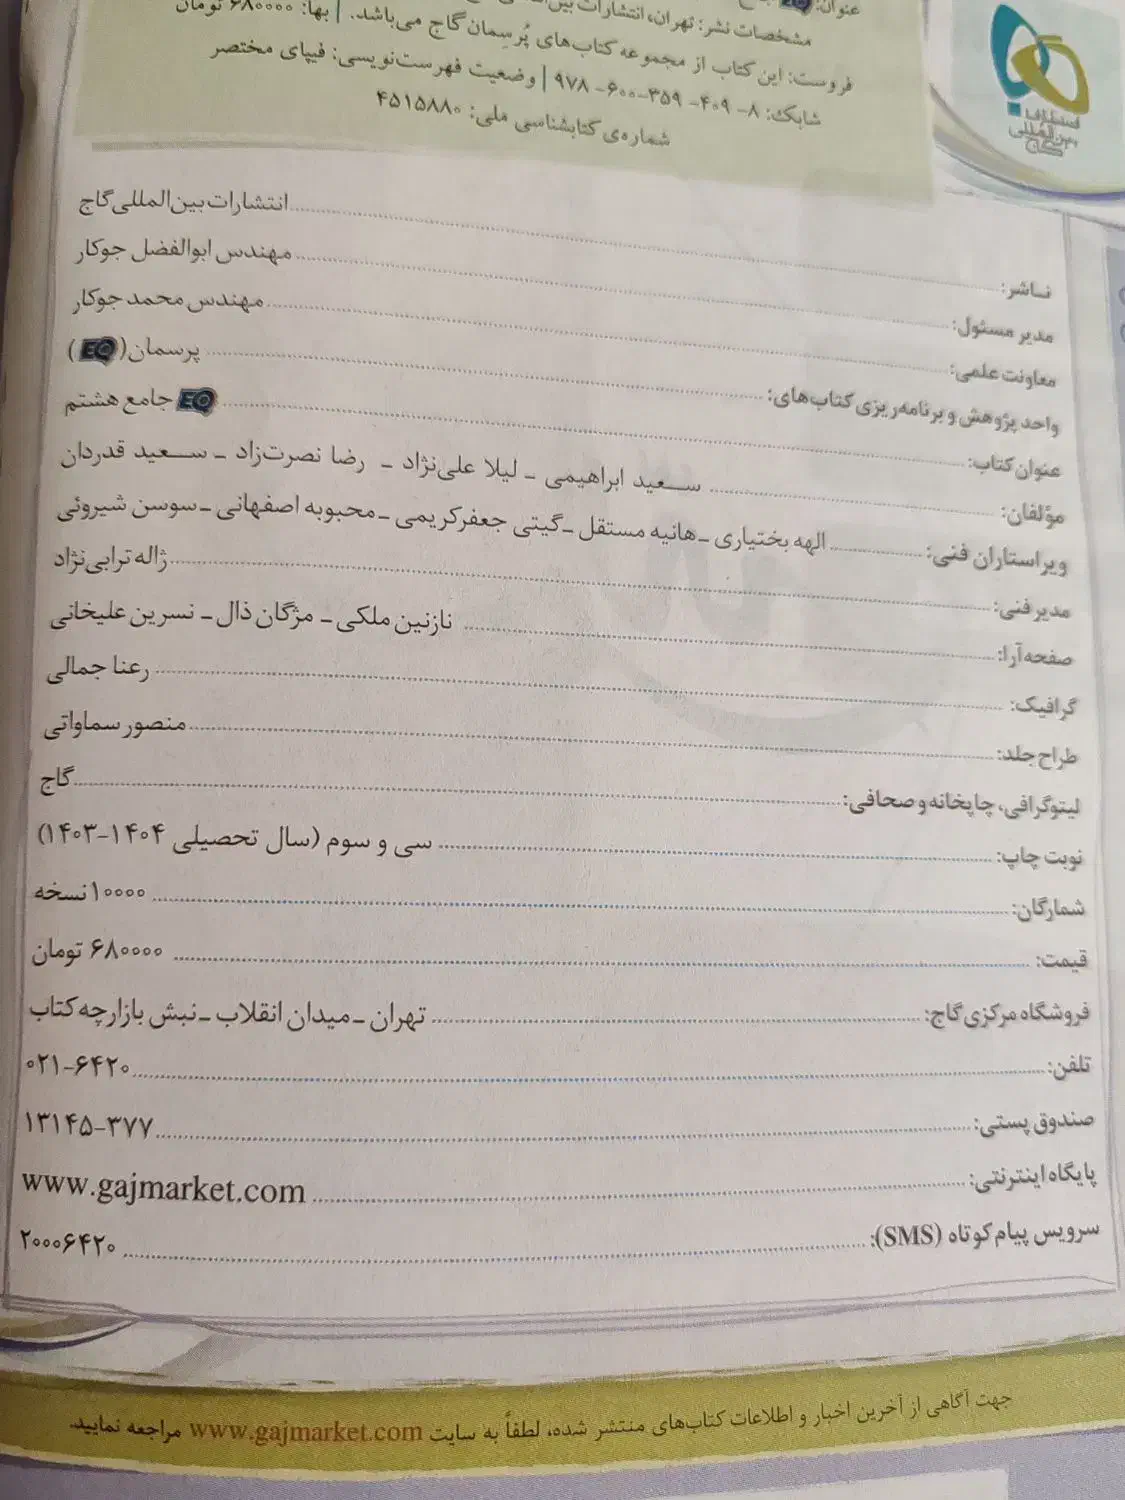 عنوان: EQ
مشخصات نشر: تهران، انتشارات
فروست: این کتاب از مجموعه کتاب‌های پُرسِمان گاج می‌باشد. | بها: ۶۸۰۰۰۰ تومان
شابک: ۸-۴۰۹-۳۵۹-۶۰۰-۹۷۸ | وضعیت فهرست‌نویسی: فیپای مختصر
شماره‌ی کتابشناسی ملی: ۴۵۱۵۸۸۰
انتشارات بین‌المللی گاج
ناشر: انتشارات بین‌المللی گاج
مدیر مسئول: مهندس ابوالفضل جوکار
معاونت علمی: مهندس محمد جوکار
واحد پژوهش و برنامه‌ریزی کتاب‌های: پرسمان (EQ)
عنوان کتاب: EQ جامع هشتم
مؤلفان: سعید ابراهیمی - لیلا علی‌نژاد - رضا نصرت‌زاد - سعید قدردان
ویراستاران فنی: الهه بختیاری - هانیه مستقل - گیتی جعفرکریمی - محبوبه اصفهانی - سوسن شیروئی
مدیر فنی: ژاله ترابی‌نژاد
صفحه‌آرا: نازنین ملکی - مژگان ذال - نسرین علیخانی
گرافیک: رعنا جمالی
طراح جلد: منصور سماواتی
لیتوگرافی، چاپخانه و صحافی: گاج
نوبت چاپ: سی و سوم (سال تحصیلی ۱۴۰۴-۱۴۰۳)
شمارگان: ۱۰۰۰۰ نسخه
قیمت: ۶۸۰۰۰۰ تومان
فروشگاه مرکزی گاج: تهران - میدان انقلاب - نبش بازارچه کتاب
تلفن: ۰۲۱-۶۴۲۰
صندوق پستی: ۱۳۱۴۵-۳۷۷
پایگاه اینترنتی: www.gajmarket.com
سرویس پیام کوتاه (SMS): ۲۰۰۰۶۴۲۰
جهت آگاهی از آخرین اخبار و اطلاعات کتاب‌های منتشر شده، لطفاً به سایت www.gajmarket.com مراجعه نمایید.